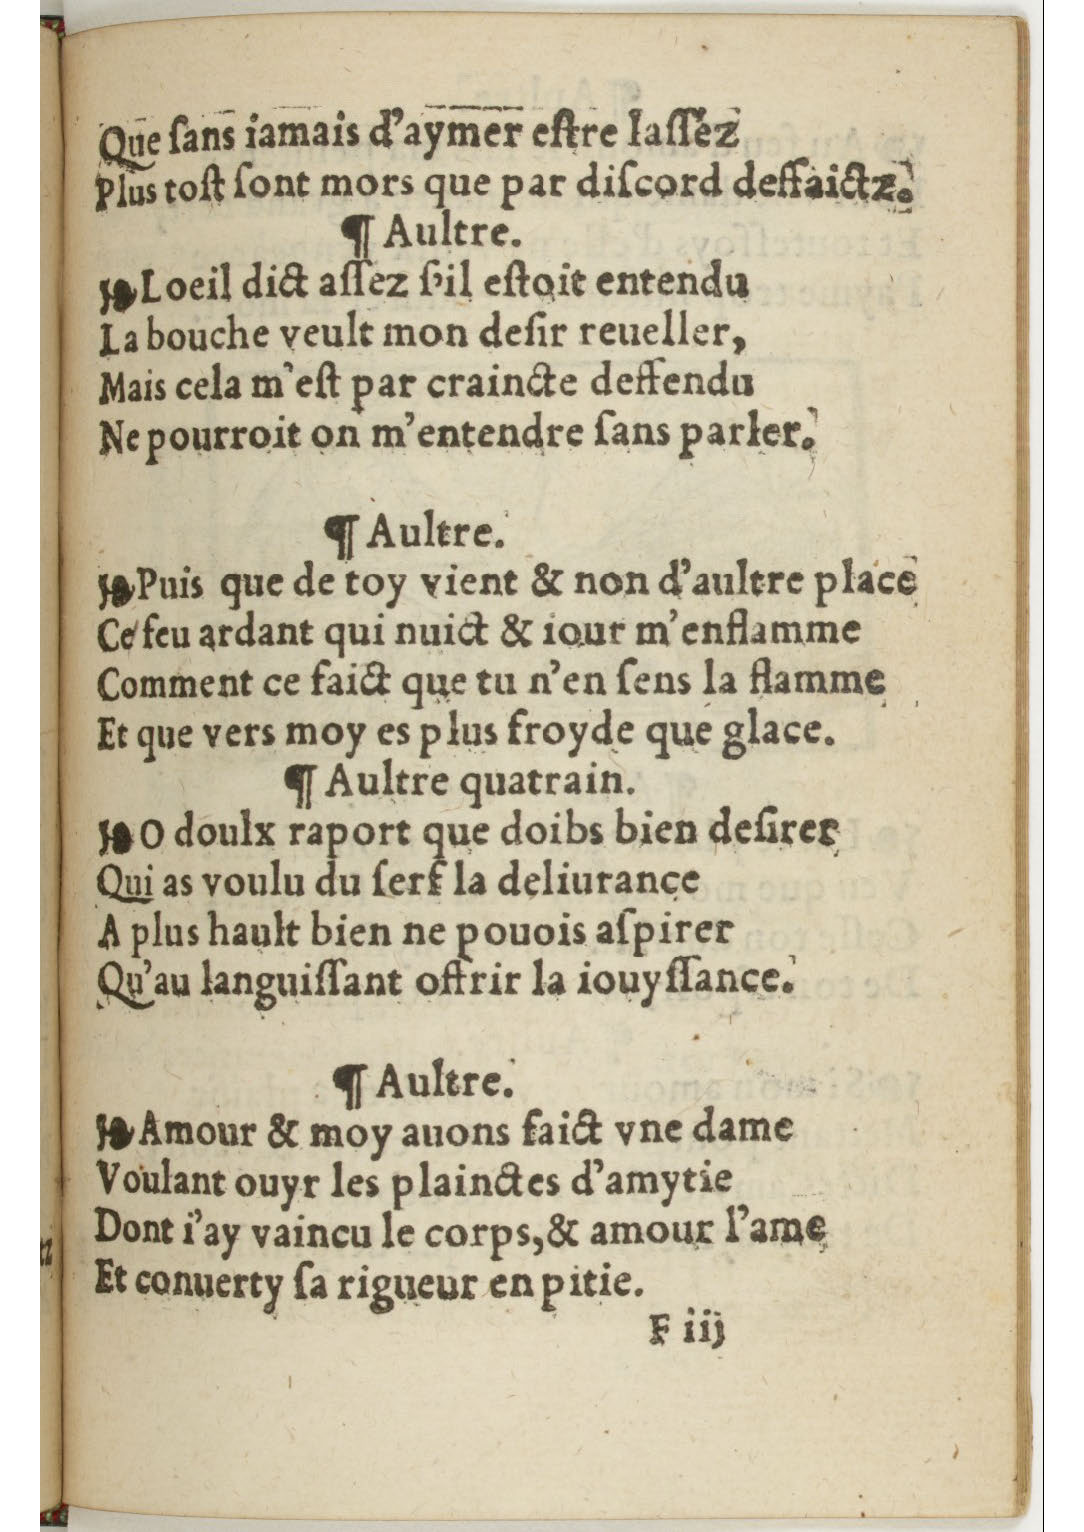 Que ſans iamais d'aymer eſtre laſſez
Plus toſt ſont mors que par diſcord deffaictz.
¶ Aultre.
❧ Loeil dict aſſez ſ'il eſtoit entendu
La bouche veult mon deſir reueller,
Mais cela m'eſt par craincte deffendu
Ne pourroit on m'entendre ſans parler.
¶ Aultre.
❧ Puis que de toy vient & non d'aultre place
Ce feu ardant qui nuict & iour m'enflamme
Comment ce faict que tu n'en ſens la flamme
Et que vers moy es plus froyde que glace.
¶ Aultre quatrain.
❧ O doulx raport que doibs bien deſirer
Qui as voulu du ſerf la deliurance
A plus hault bien ne pouois aſpirer
Qu'au languiſſant offrir la iouyſſance.
¶ Aultre.
❧ Amour & moy auons faict vne dame
Voulant ouyr les plainctes d'amytie
Dont i'ay vaincu le corps, & amour l'ame
Et conuerty ſa rigueur en pitie.
F iij